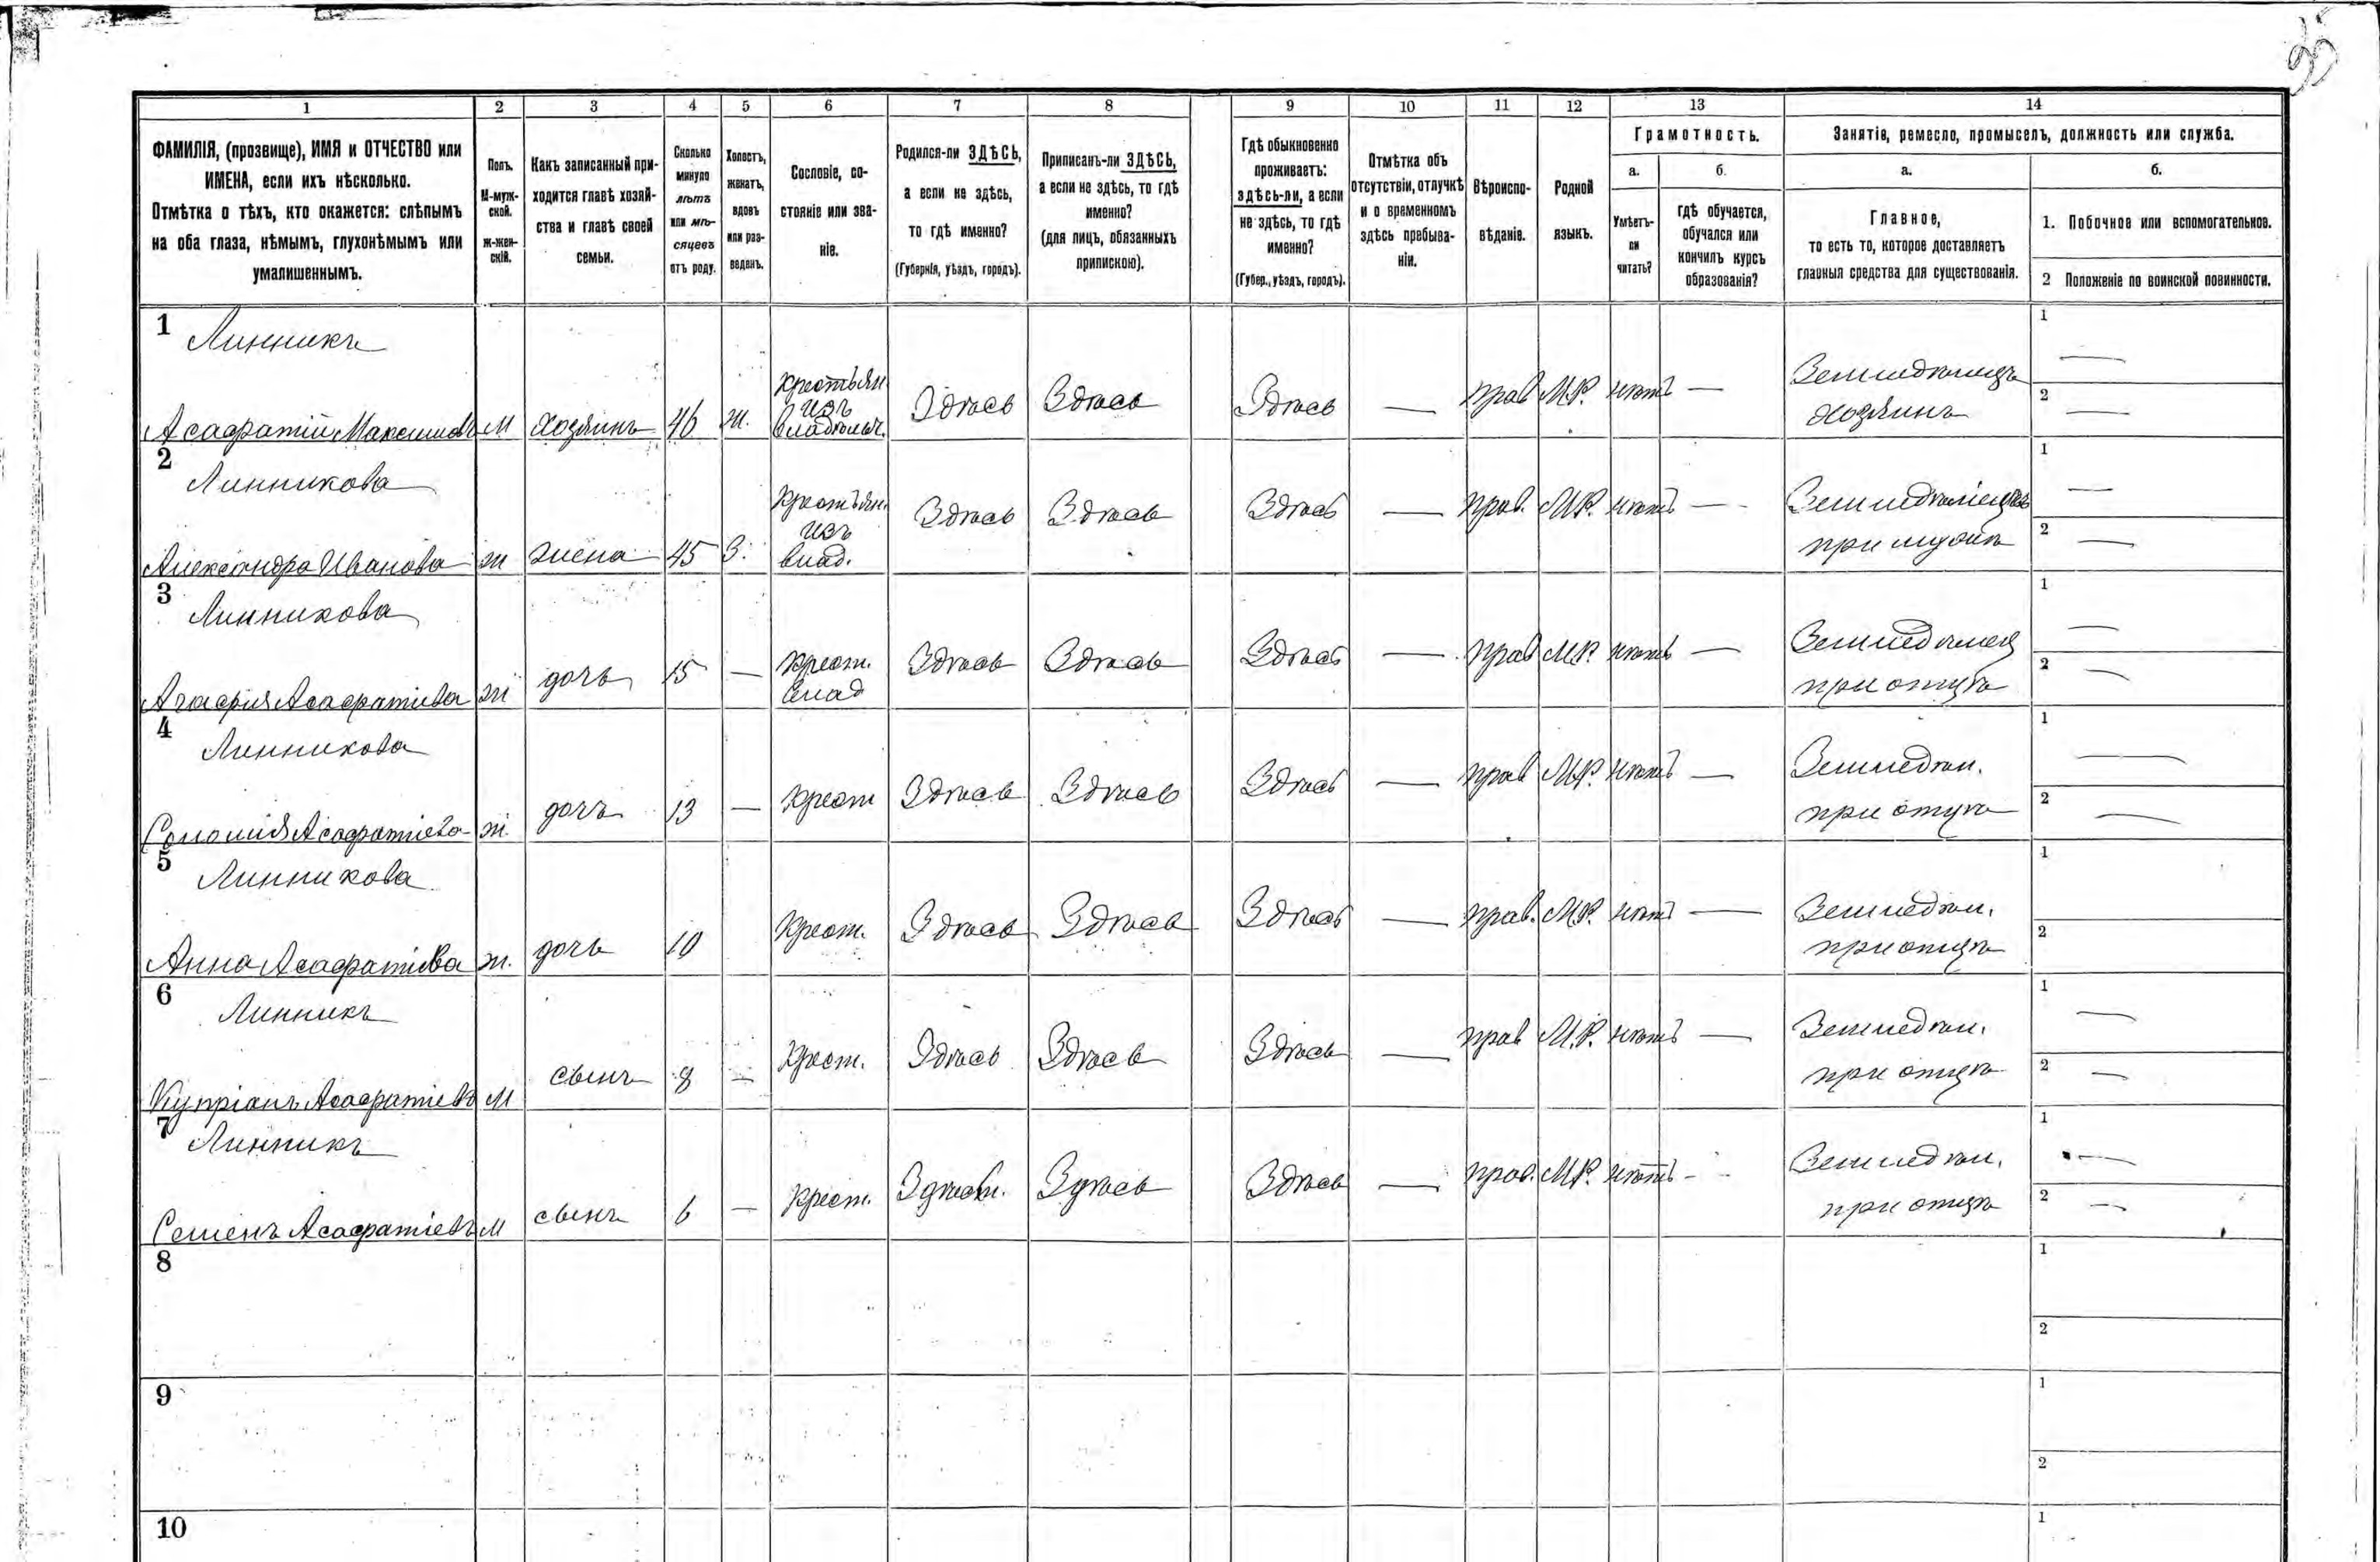 95
1 2 3 4 5 6 7 8 9 10 11 12 13 14
ФАМИЛІЯ, (прозвище), ИМЯ и ОТЧЕСТВО или
ИМЕНА, если ихъ нѣсколько.
Отмѣтка о тѣхъ, кто окажется: слѣпымъ
на оба глаза, нѣмымъ, глухонѣмымъ или
умалишеннымъ.
Полъ.
М-муж-
ской.
ж-жен-
скій.
Какъ записанный при-
ходится главѣ хозяй-
ства и главѣ своей
семьи.
Сколько
минуло
лѣтъ
или мѣ-
сяцевъ
отъ роду.
Холостъ,
женатъ,
вдовъ
или раз-
веденъ.
Сословіе, со-
стояніе или зва-
ніе.
Родился-ли ЗДѢСЬ,
а если не здѣсь,
то гдѣ именно?
(Губернія, уѣздъ, городъ).
Приписанъ-ли ЗДѢСЬ,
а если не здѣсь, то гдѣ
именно?
(для лицъ, обязанныхъ
припискою).
Гдѣ обыкновенно
проживаетъ:
здѣсь-ли, а если
не здѣсь, то гдѣ
именно?
(Губер., уѣздъ, городъ).
Отмѣтка объ
отсутствіи, отлучкѣ
и о временномъ
здѣсь пребыва-
ніи.
Вѣроиспо-
вѣданіе.
Родной
языкъ.
Грамотность.
а.
Умѣетъ-
ли
читать?
б.
гдѣ обучается,
обучался или
кончилъ курсъ
образованія?
Занятіе, ремесло, промыселъ, должность или служба.
а.
Главное,
то есть то, которое доставляетъ
главныя средства для существованія.
б.
1. Побочное или вспомогательное.
2 Положеніе по воинской повинности.
1
Линникъ
Асафатій Максимовъ М Хозяинъ 46 ж.
Крестьян
изъ
владѣльч.
Здѣсь Здѣсь Здѣсь — прав М.Р. нѣтъ —
Земледѣлецъ
хозяинъ
1 —
2 —
2
Линникова
Александра Иванова ж жена 45 З.
Крестьян.
изъ
влад.
Здѣсь Здѣсь Здѣсь — прав. М.Р. нѣтъ —
при мужѣ
1 —
2 —
3
Линникова
Агафія Асафатіева ж дочь 15 —
Крест.
влад
Здѣсь Здѣсь Здѣсь — прав М.Р. нѣтъ —
Земледѣлец
при отцѣ
1 —
2 —
4
Линникова
Соломія Асафатіева ж. дочь 13 — Крест Здѣсь Здѣсь Здѣсь — прав М.Р. нѣтъ —
Земледѣл.
при отцѣ
1 —
2 —
5
Линникова
Анна Асафатіева ж. дочь 10 Крест. Здѣсь Здѣсь Здѣсь — прав. М.Р. нѣтъ —
Земледѣл.
при отцѣ
1
2
6
Линникъ
Купріанъ Асафатіевъ М сынъ 8 — Крест. Здѣсь Здѣсь Здѣсь — прав М.Р. нѣтъ —
Земледѣл.
при отцѣ
1 —
2 —
7
Линникъ
Семенъ Асафатіевъ М сынъ 6 — Крест. Здѣсь. Здѣсь Здѣсь — прав. М.Р. нѣтъ -
Земледѣл.
при отцѣ
1 —
2 —
8
1
2
9
1
2
10
1